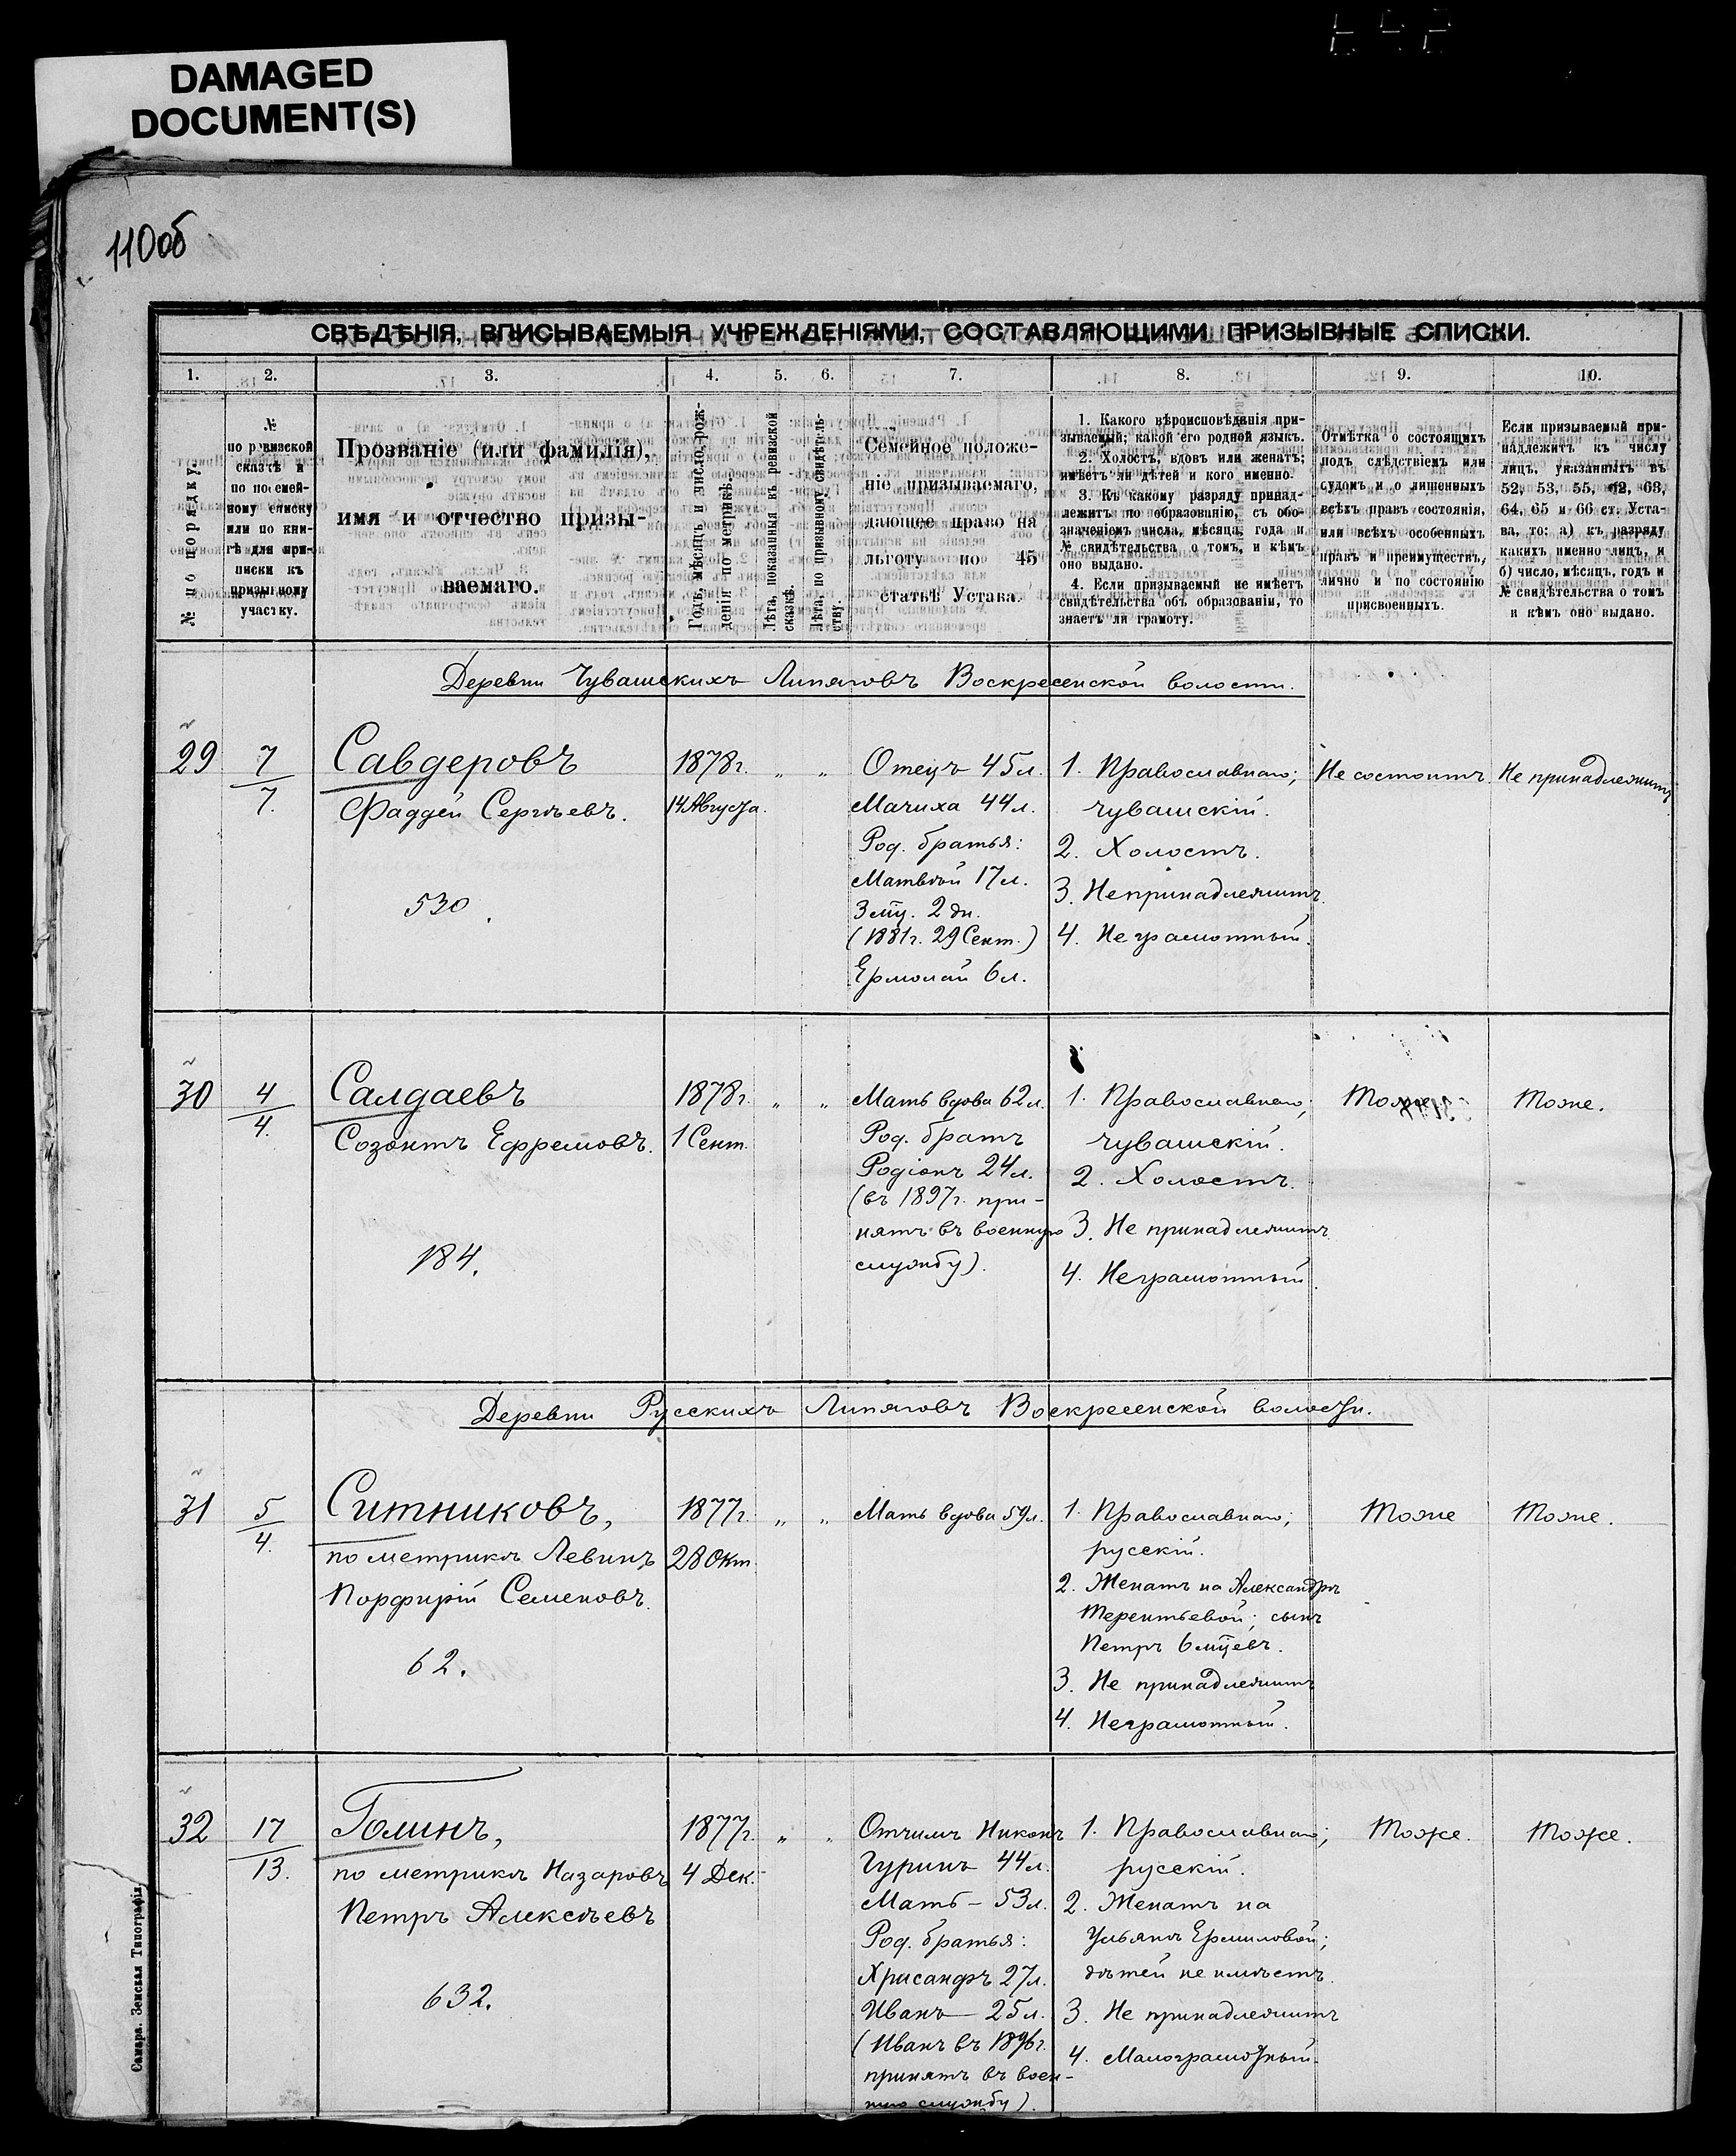 DAMAGED
DOCUMENT(S)
110об
СВѢДѢНІЯ, ВПИСЫВАЕМЫЯ УЧРЕЖДЕНІЯМИ, СОСТАВЛЯЮЩИМИ ПРИЗЫВНЫЕ СПИСКИ.
1. 2. 3. 4. 5. 6. 7. 8. 9. 10.
№ по порядку.
№
по ревизской
сказкѣ и
по посемей-
ному списку
или по кни-
гѣ для при-
писки къ
призывному
участку.
Прозваніе (или фамилія),
имя и отчество призы-
ваемаго.
Годъ, мѣсяцъ и число рож-
денія по метрикѣ.
Лѣта, показанныя въ ревизской
сказкѣ.
Лѣта, по призывному свидѣтель-
ству.
Семейное положе-
ніе призываемаго,
дающее право на
льготу по 45
статьѣ Устава.
1. Какого вѣроисповѣданія при-
зываемый; какой его родной языкъ.
2. Холостъ, вдовъ или женатъ;
имѣетъ ли дѣтей и кого именно.
3. Къ какому разряду принад-
лежитъ по образованію, съ обо-
значеніемъ числа, мѣсяца, года и
№ свидѣтельства о томъ, и кѣмъ
оно выдано.
4. Если призываемый не имѣетъ
свидѣтельства объ образованіи, то
знаетъ ли грамоту.
Отмѣтка о состоящихъ
подъ слѣдствіемъ или
судомъ и о лишенныхъ
всѣхъ правъ состоянія,
или всѣхъ особенныхъ
правъ и преимуществъ,
лично и по состоянію
присвоенныхъ.
Если призываемый при-
надлежитъ къ числу
лицъ, указанныхъ въ
52, 53, 55, 62, 63,
64, 65 и 66 ст. Уста-
ва, то: а) къ разряду
какихъ именно лицъ, и
б) число, мѣсяцъ, годъ и
№ свидѣтельства о томъ
и кѣмъ оно выдано.
Деревни Чувашскихъ Липяговъ Воскресенской волости.
29
7
7.
Савдеровъ
Фаддей Сергѣевъ.
530.
1878г. „ „
14 Августа.
Отецъ 45л.
Мачиха 44л.
Род. братья:
Матвѣй 17л.
3 мц. 2 дн.
(1881г. 29 Сент.)
Ермолай 6л.
1. Православнаго;
чувашскій.
2. Холостъ.
3. Непринадлежитъ.
4. Неграмотный.
Не состоитъ.
Не принадлежитъ
30
4
4.
Салдаевъ
Созонтъ Ефремовъ.
184.
1878г. „ „
1 Сент.
Мать вдова 62л.
Род. братъ
Родіонъ 24л.
(въ 1897г. при-
нятъ въ военную
службу).
1. Православнаго;
чувашскій.
2. Холостъ.
3. Не принадлежитъ.
4. Неграмотный.
Тоже
Тоже.
Деревни Русскихъ Липяговъ Воскресенской волости.
31
5
4.
Ситниковъ,
по метрикѣ Левинъ
Порфирій Семеновъ.
62.
1877г. „ „
28 Окт.
Мать вдова 59л.
1. Православнаго;
русскій.
2. Женатъ на Александрѣ
Терентьевой; сынъ
Петръ 6 мцевъ.
3. Не принадлежитъ
4. Неграмотный.
Тоже
Тоже.
32
17
13.
Голинъ,
по метрикѣ Назаровъ
Петръ Алексѣевъ
632.
1877г. „ „
4 Дек.
Отчимъ Никонъ
Гуринъ 44л.
Мать – 53л.
Род. братья:
Хрисанфъ 27л.
Иванъ – 25л.
(Иванъ въ 1896г.
принятъ въ воен-
ную службу).
1. Православнаго;
русскій.
2. Женатъ на
Ульянѣ Ермиловой;
дѣтей не имѣетъ.
3. Не принадлежитъ
4. Малограмотный.
Тоже.
Тоже.
Самара. Земская Типографія.